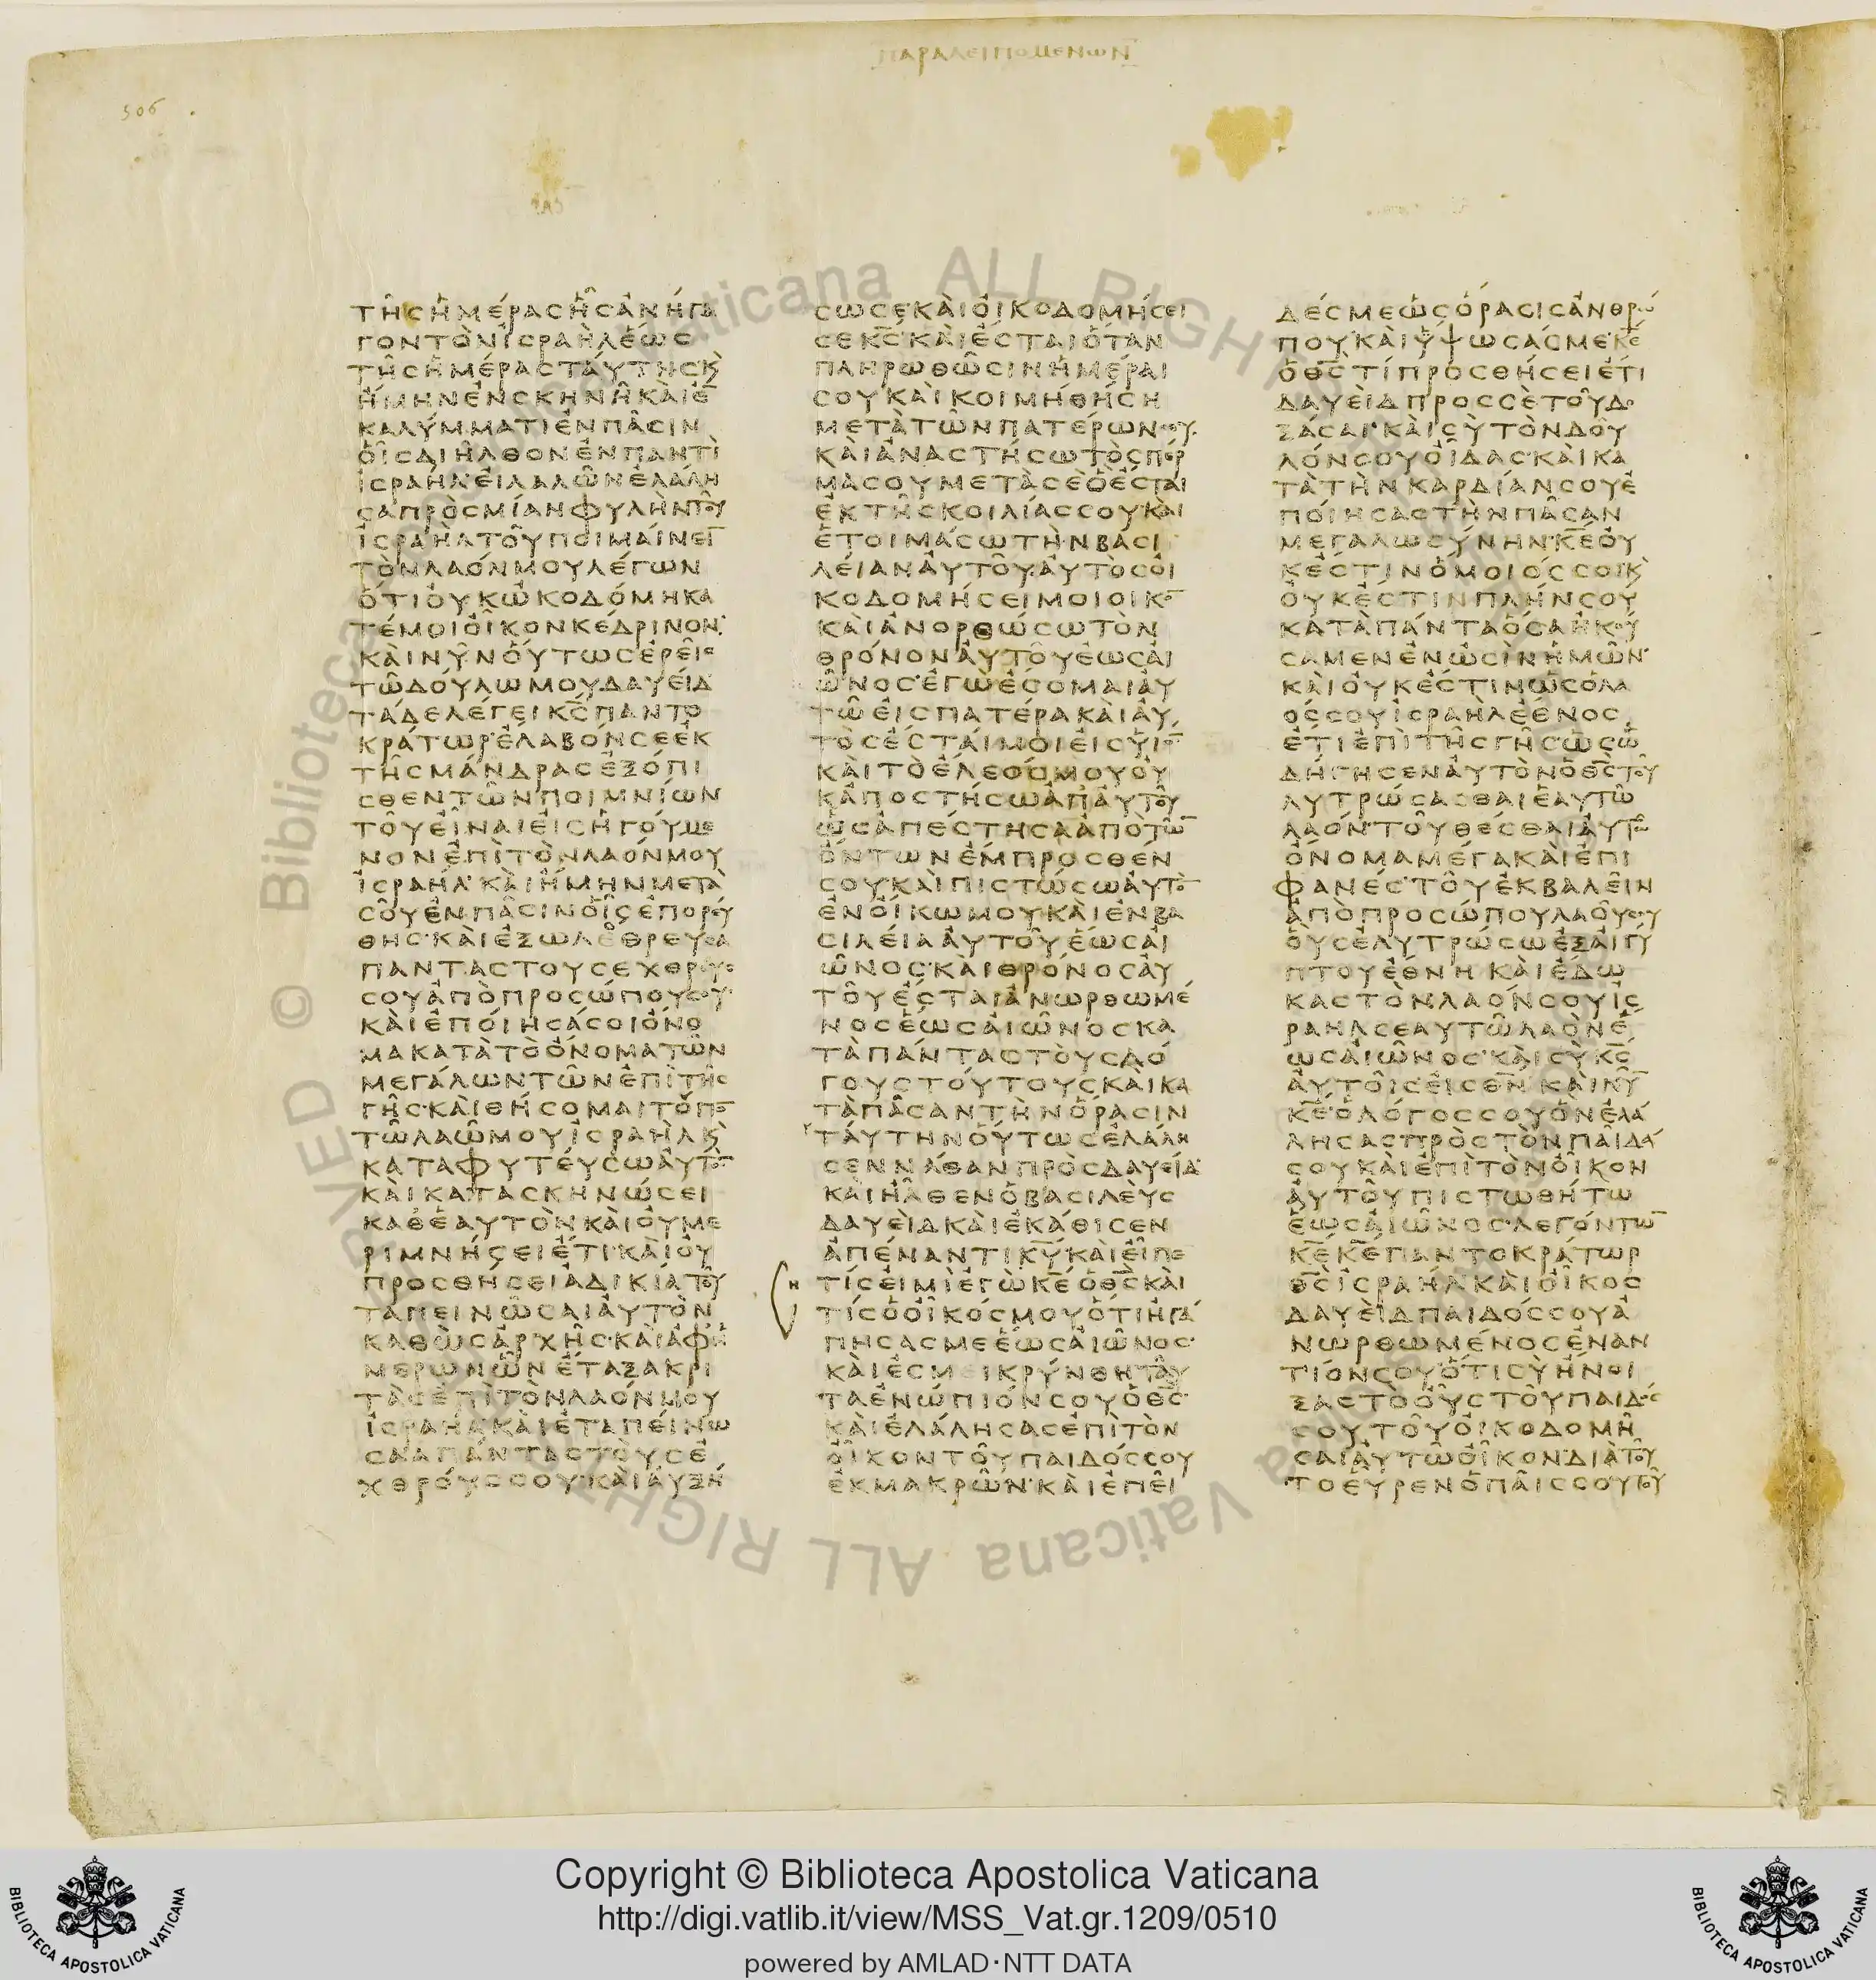 ΠΑΡΑΛΕΙΠΟΜΕΝΩΝ
506
ΤΗϹΗΜΕΡΑϹΗϹΑΝΗΓΑ
ΓΟΝΤΟΝΙϹΡΑΗΛΕΩϹ
ΤΗϹΗΜΕΡΑϹΤΑΥΤΗϹΚ
ΗΜΗΝΕΝϹΚΗΝΗΚΑΙΕ̅
ΚΑΛΥΜΜΑΤΙΕΝΠΑϹΙΝ
ΟΙϹΔΙΗΛΘΟΝΕΝΠΑΝΤΙ
ΙϹΡΑΗΛ·ΕΙΛΑΛΩΝΕΛΑΛΗ
ϹΑΠΡΟϹΜΙΑΝΦΥΛΗΝΤΟΥ
ΙϹΡΑΗΛΤΟΥΠΟΙΜΑΙΝΕΙ̅
ΤΟΝΛΑΟΝΜΟΥΛΕΓΩΝ
ΟΤΙΟΥΚΩΚΟΔΟΜΗΚΑ
ΤΕΜΟΙΟΙΚΟΝΚΕΔΡΙΝΟΝ·
ΚΑΙΝΥΝΟΥΤΩϹΕΡΕΙϹ
ΤΩΔΟΥΛΩΜΟΥΔΑΥΕΙΔ
ΤΑΔΕΛΕΓΕΙΚ̅Ϲ̅ΠΑΝΤΟ
ΚΡΑΤΩΡ·ΕΛΑΒΟΝϹΕΕΚ
ΤΗϹΜΑΝΔΡΑϹΕΞΟΠΙ
ϹΘΕΝΤΩΝΠΟΙΜΝΙΩΝ
ΤΟΥΕΙΝΑΙΕΙϹΗΓΟΥΜΕ
ΝΟΝΕΠΙΤΟΝΛΑΟΝΜΟΥ
ΙϹΡΑΗΛ·ΚΑΙΗΜΗΝΜΕΤΑ
ϹΟΥΕΝΠΑϹΙΝΟΙϹΕΠΟΡΕΥ
ΘΗϹ·ΚΑΙΕΞΩΛΕΘΡΕΥϹΑ
ΠΑΝΤΑϹΤΟΥϹΕΧΘΡΟΥϹ
ϹΟΥΑΠΟΠΡΟϹΩΠΟΥϹΟΥ·
ΚΑΙΕΠΟΙΗϹΑϹΟΙΟΝΟ
ΜΑΚΑΤΑΤΟΟΝΟΜΑΤΩΝ
ΜΕΓΑΛΩΝΤΩΝΕΠΙΤΗϹ
ΓΗϹ·ΚΑΙΘΗϹΟΜΑΙΤΟΠΟ̅
ΤΩΛΑΩΜΟΥΙϹΡΑΗΛΚ
ΚΑΤΑΦΥΤΕΥϹΩΑΥΤΟ̅
ΚΑΙΚΑΤΑϹΚΗΝΩϹΕΙ
ΚΑΘΕΑΥΤΟΝΚΑΙΟΥΜΕ
ΡΙΜΝΗϹΕΙΕΤΙ·ΚΑΙΟΥ
ΠΡΟϹΘΗϹΕΙΑΔΙΚΙΑΤΟΥ
ΤΑΠΕΙΝΩϹΑΙΑΥΤΟΝ
ΚΑΘΩϹΑΡΧΗϹ·ΚΑΙΑΦΗ
ΜΕΡΩΝΩΝΕΤΑΞΑΚΡΙ
ΤΑϹΕΠΙΤΟΝΛΑΟΝΜΟΥ
ΙϹΡΑΗΛΚΑΙΕΤΑΠΕΙΝΩ
ϹΑΑΠΑΝΤΑϹΤΟΥϹΕ
ΧΘΡΟΥϹϹΟΥ·ΚΑΙΑΥΞΗ
ϹΩϹΕΚΑΙΟΙΚΟΔΟΜΗϹΕΙ
ϹΕΚ̅Ϲ̅·ΚΑΙΕϹΤΑΙΟΤΑΝ
ΠΛΗΡΩΘΩϹΙΝΗΜΕΡΑΙ
ϹΟΥΚΑΙΚΟΙΜΗΘΗϹΗ
ΜΕΤΑΤΩΝΠΑΤΕΡΩΝϹΟΥ·
ΚΑΙΑΝΑϹΤΗϹΩΤΟϹΠΕΡ
ΜΑϹΟΥΜΕΤΑϹΕΟΕϹΤΑΙ
ΕΚΤΗϹΚΟΙΛΙΑϹϹΟΥΚΑΙ
ΕΤΟΙΜΑϹΩΤΗΝΒΑϹΙ
ΛΕΙΑΝΑΥΤΟΥ·ΑΥΤΟϹΟΙ
ΚΟΔΟΜΗϹΕΙΜΟΙΟΙΚΟ̅
ΚΑΙΑΝΟΡΘΩϹΩΤΟΝ
ΘΡΟΝΟΝΑΥΤΟΥΕΩϹΑΙ
ΩΝΟϹ·ΕΓΩΕϹΟΜΑΙΑΥ
ΤΩΕΙϹΠΑΤΕΡΑΚΑΙΑΥ
ΤΟϹΕϹΤΑΙΜΟΙΕΙϹΥΙΟ̅
ΚΑΙΤΟΕΛΕΟϹΜΟΥΟΥ
ΚΑΠΟϹΤΗϹΩΑΠΑΥΤΟΥ
ΩϹΑΠΕϹΤΗϹΑΑΠΟΤΩ̅
ΟΝΤΩΝΕΜΠΡΟϹΘΕΝ
ϹΟΥΚΑΙΠΙϹΤΩϹΩΑΥΤΟ̅
ΕΝΟΙΚΩΜΟΥΚΑΙΕΝΒΑ
ϹΙΛΕΙΑΑΥΤΟΥΕΩϹΑΙ
ΩΝΟϹ·ΚΑΙΘΡΟΝΟϹΑΥ
ΤΟΥΕϹΤΑΙΑΝΩΡΘΩΜΕ
ΝΟϹΕΩϹΑΙΩΝΟϹΚΑ
ΤΑΠΑΝΤΑϹΤΟΥϹΛΟ
ΓΟΥϹΤΟΥΤΟΥϹΚΑΙΚΑ
ΤΑΠΑϹΑΝΤΗΝΟΡΑϹΙΝ
ΤΑΥΤΗΝΟΥΤΩϹΕΛΑΛΗ
ϹΕΝΝΑΘΑΝΠΡΟϹΔΑΥΕΙΔ·
ΚΑΙΗΛΘΕΝΟΒΑϹΙΛΕΥϹ
ΔΑΥΕΙΔΚΑΙΕΚΑΘΙϹΕΝ
ΑΠΕΝΑΝΤΙΚ̅Υ̅ΚΑΙΕΙΠΕ
Η ΤΙϹΕΙΜΙΕΓΩΚ̅Ε̅ΟΘ̅Ϲ̅ΚΑΙ
ΤΙϹΟΟΙΚΟϹΜΟΥΟΤΙΗΓΑ
ΠΗϹΑϹΜΕΕΩϹΑΙΩΝΟϹ·
ΚΑΙΕϹΜΕΙΚΡΥΝΘΗΤΑΥ
ΤΑΕΝΩΠΙΟΝϹΟΥΟΘ̅Ϲ̅·
ΚΑΙΕΛΑΛΗϹΑϹΕΠΙΤΟΝ
ΟΙΚΟΝΤΟΥΠΑΙΔΟϹϹΟΥ
ΕΚΜΑΚΡΩΝ·ΚΑΙΕΠΕΙ
ΔΕϹΜΕΩϹΟΡΑϹΙϹΑΝΘΡΩ
ΠΟΥ·ΚΑΙΥΨΩϹΑϹΜΕ·Κ̅Ε̅
ΟΘ̅Ϲ̅ΤΙΠΡΟϹΘΗϹΕΙΕΤΙ
ΔΑΥΕΙΔΠΡΟϹϹΕΤΟΥΔΟ
ΞΑϹΑΙ·ΚΑΙϹΥΤΟΝΔΟΥ
ΛΟΝϹΟΥΟΙΔΑϹ·ΚΑΙΚΑ
ΤΑΤΗΝΚΑΡΔΙΑΝϹΟΥΕ
ΠΟΙΗϹΑϹΤΗΝΠΑϹΑΝ
ΜΕΓΑΛΩϹΥΝΗΝ·Κ̅Ε̅ΟΥ
ΚΕϹΤΙΝΟΜΟΙΟϹϹΟΙΚ
ΟΥΚΕϹΤΙΝΠΛΗΝϹΟΥ
ΚΑΤΑΠΑΝΤΑΟϹΑΗΚΟΥ
ϹΑΜΕΝΕΝΩϹΙΝΗΜΩΝ·
ΚΑΙΟΥΚΕϹΤΙΝΩϹΟΛΑ
ΟϹϹΟΥΙϹΡΑΗΛΕΘΝΟϹ
ΕΤΙΕΠΙΤΗϹΓΗϹΩϹΩ
ΔΗΓΗϹΕΝΑΥΤΟΝΟΘ̅Ϲ̅ΤΟΥ
ΛΥΤΡΩϹΑϹΘΑΙΕΑΥΤΩ
ΛΑΟΝ·ΤΟΥΘΕϹΘΑΙΑΥΤΩ
ΟΝΟΜΑΜΕΓΑΚΑΙΕΠΙ
ΦΑΝΕϹ·ΤΟΥΕΚΒΑΛΕΙΝ
ΑΠΟΠΡΟϹΩΠΟΥΛΑΟΥϹΟΥ
ΟΥϹΕΛΥΤΡΩϹΩΕΞΑΙΓΥ
ΠΤΟΥΕΘΝΗΚΑΙΕΔΩ
ΚΑϹΤΟΝΛΑΟΝϹΟΥΙϹ
ΡΑΗΛϹΕΑΥΤΩΛΑΟΝΕ
ΩϹΑΙΩΝΟϹ·ΚΑΙϹΥΚ̅Ϲ̅
ΑΥΤΟΙϹΕΙϹΘ̅Ν̅·ΚΑΙΝΥ̅
Κ̅Ε̅·ΟΛΟΓΟϹϹΟΥΟΝΕΛΑ
ΛΗϹΑϹΠΡΟϹΤΟΝΠΑΙΔΑ
ϹΟΥΚΑΙΕΠΙΤΟΝΟΙΚΟΝ
ΑΥΤΟΥΠΙϹΤΩΘΗΤΩ
ΕΩϹΑΙΩΝΟϹ·ΛΕΓΟΝΤΩ̅
Κ̅Ε̅Κ̅Ε̅ΠΑΝΤΟΚΡΑΤΩΡ
Θ̅Ϲ̅ΙϹΡΑΗΛΚΑΙΟΙΚΟϹ
ΔΑΥΕΙΔΠΑΙΔΟϹϹΟΥΑ
ΝΩΡΘΩΜΕΝΟϹΕΝΑΝ
ΤΙΟΝϹΟΥ·ΟΤΙϹΥΗΝΟΙ
ΞΑϹΤΟΟΥϹΤΟΥΠΑΙΔΟϹ
ϹΟΥΤΟΥΟΙΚΟΔΟΜΗ
ϹΑΙΑΥΤΩΟΙΚΟΝΔΙΑΤΟΥ
ΤΟΕΥΡΕΝΟΠΑΙϹϹΟΥΤΟΥ
Copyright © Biblioteca Apostolica Vaticana
http://digi.vatlib.it/view/MSS_Vat.gr.1209/0510
powered by AMLAD·NTT DATA
BIBLIOTECA APOSTOLICA VATICANA
BIBLIOTECA APOSTOLICA VATICANA